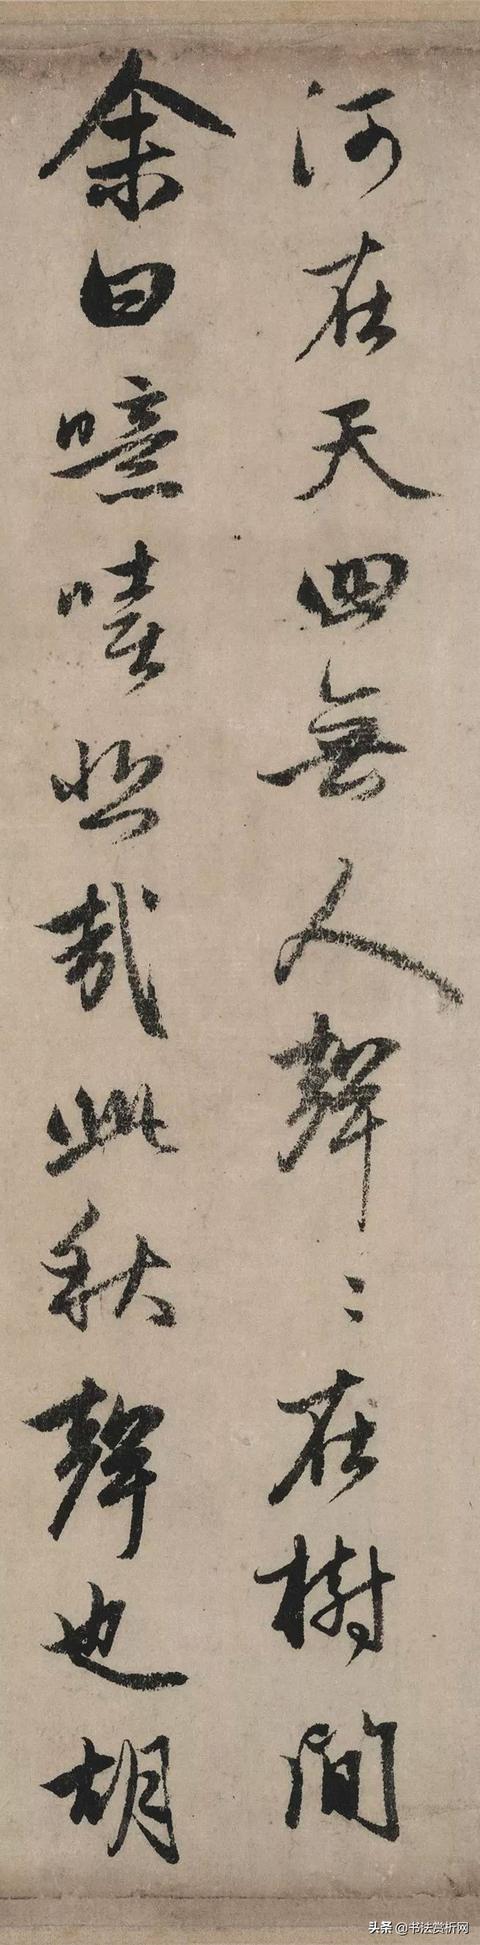 河在天四無人聲〻在樹間
余曰噫嘻悲哉此秋聲也胡
头条 @书法赏析网